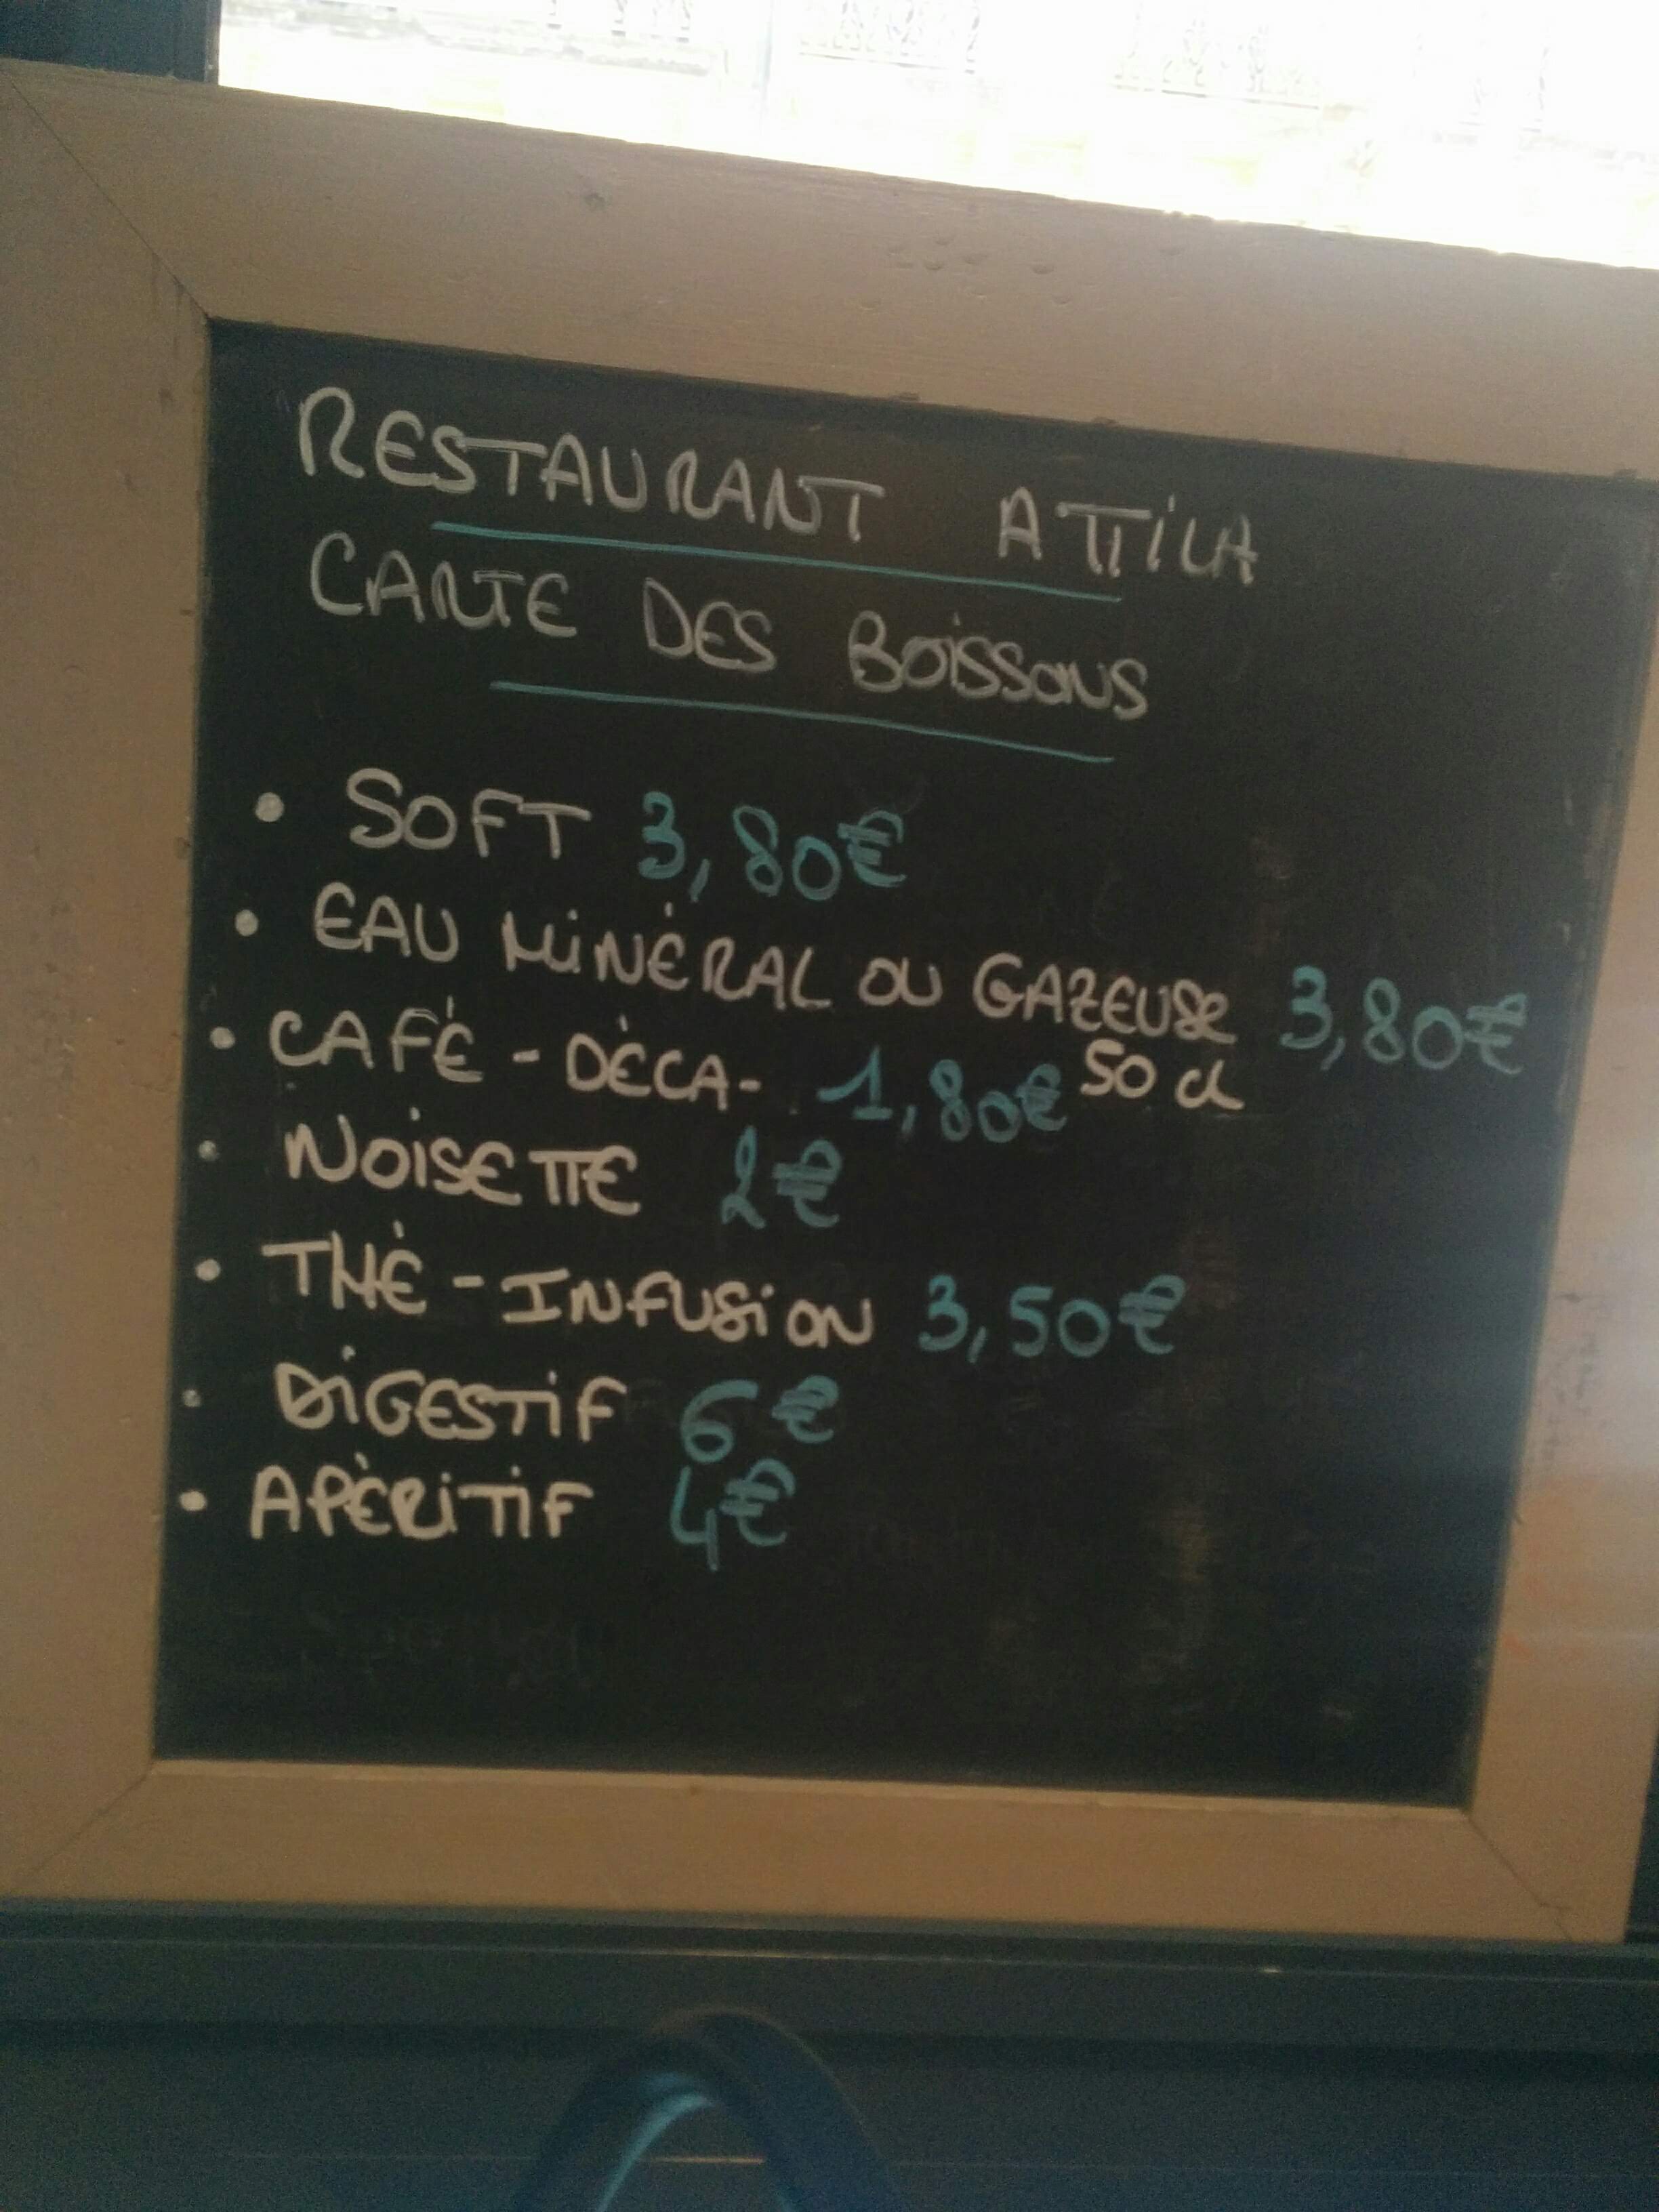 RESTAURANT ATTILA
CARTE DES BOISSONS
• SOFT 3,80€
• EAU MINÉRAL OU GAZEUSE 3,80€
50 cl
• CAFÉ - DÉCA - 1,80€
• NOISETTE 2€
• THÉ - INFUSION 3,50€
• DIGESTIF 6€
• APÉRITIF 4€